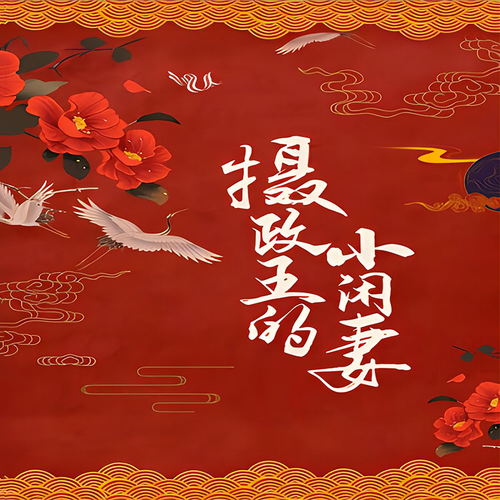 摄政王的
小闲妻